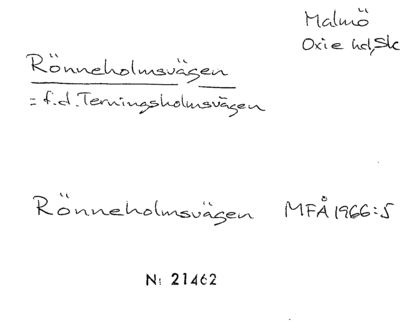 Malmö
Oxie hd, Sk
Rönneholmsvägen
= f.d. Terningsholmsvägen
Rönneholmsvägen MFÅ 1966:5
N: 21462